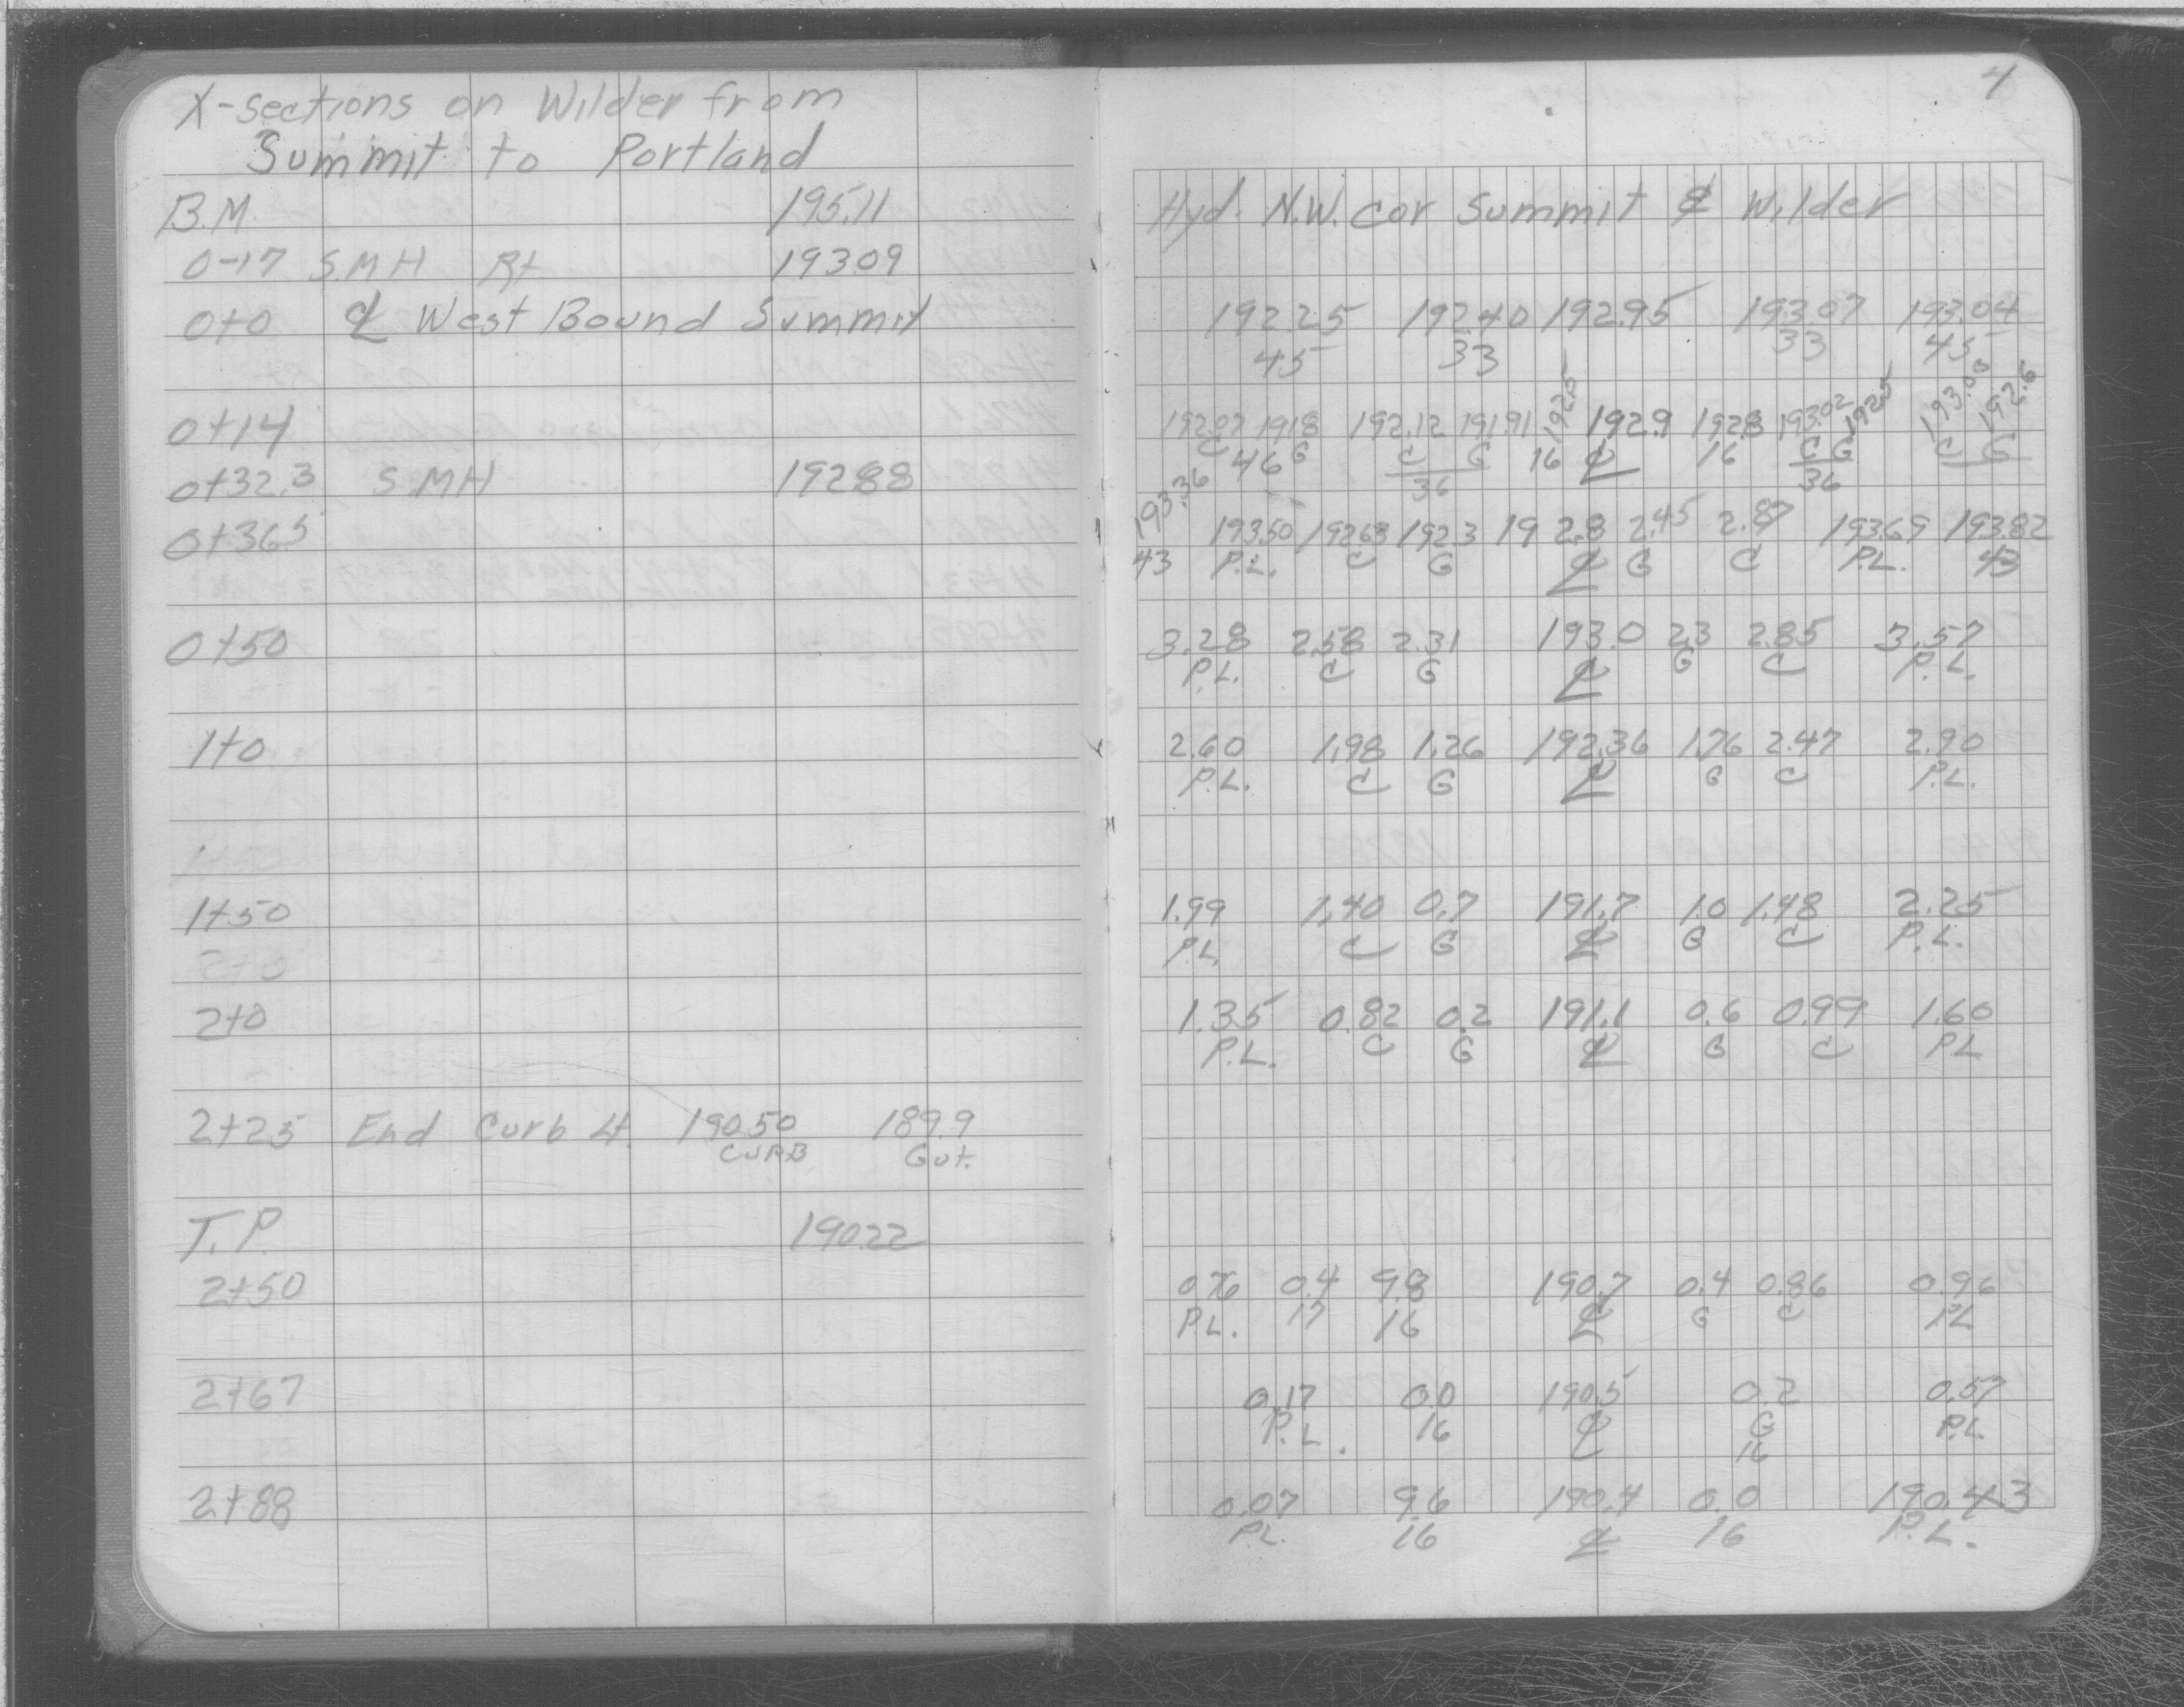 4
X-sections on Wilder from
Summit to Portland
B.M. 195.11 Hyd. N.W. cor Summit & Wilder
0-17 S.M.H Rt 193.09
0+0 ℄ West Bound Summit 192.25 192.40 192.95 193.07 193.04
45 33 33 45
0+14 192.07 191.8 192.12 191.91 192.5 192.9 192.8 193.02 192.5 193.00 192.6
C 46 G C G 16 ℄ 16 C G C G
36 36
0+32.3 S.M.H 192.88
0+36.5 193.36 193.50 192.63 192.3 192.8 2.45 2.87 193.69 193.82
43 P.L. C G ℄ G C P.L. 43
0+50 3.28 2.58 2.31 193.0 2.3 2.85 3.57
P.L. C G ℄ G C P.L.
1+0 2.60 1.98 1.26 192.36 1.76 2.47 2.90
P.L. C G ℄ G C P.L.
1+50
1+50 1.99 1.40 0.7 191.7 1.0 1.48 2.25
P.L. C G ℄ G C P.L.
2+0
2+0 1.35 0.82 0.2 191.1 0.6 0.99 1.60
P.L. C G ℄ G C P.L
2+25 End Curb Lt. 190.50 189.9
CURB Gut.
T.P. 190.22
2+50 0.76 0.4 9.8 190.7 0.4 0.86 0.96
P.L. 17 16 ℄ G C P.L
2+67 0.17 0.0 190.5 0.2 0.57
P.L. 16 ℄ G P.L.
16
2+88 0.07 9.6 190.4 0.0 190.43
P.L. 16 ℄ 16 P.L.